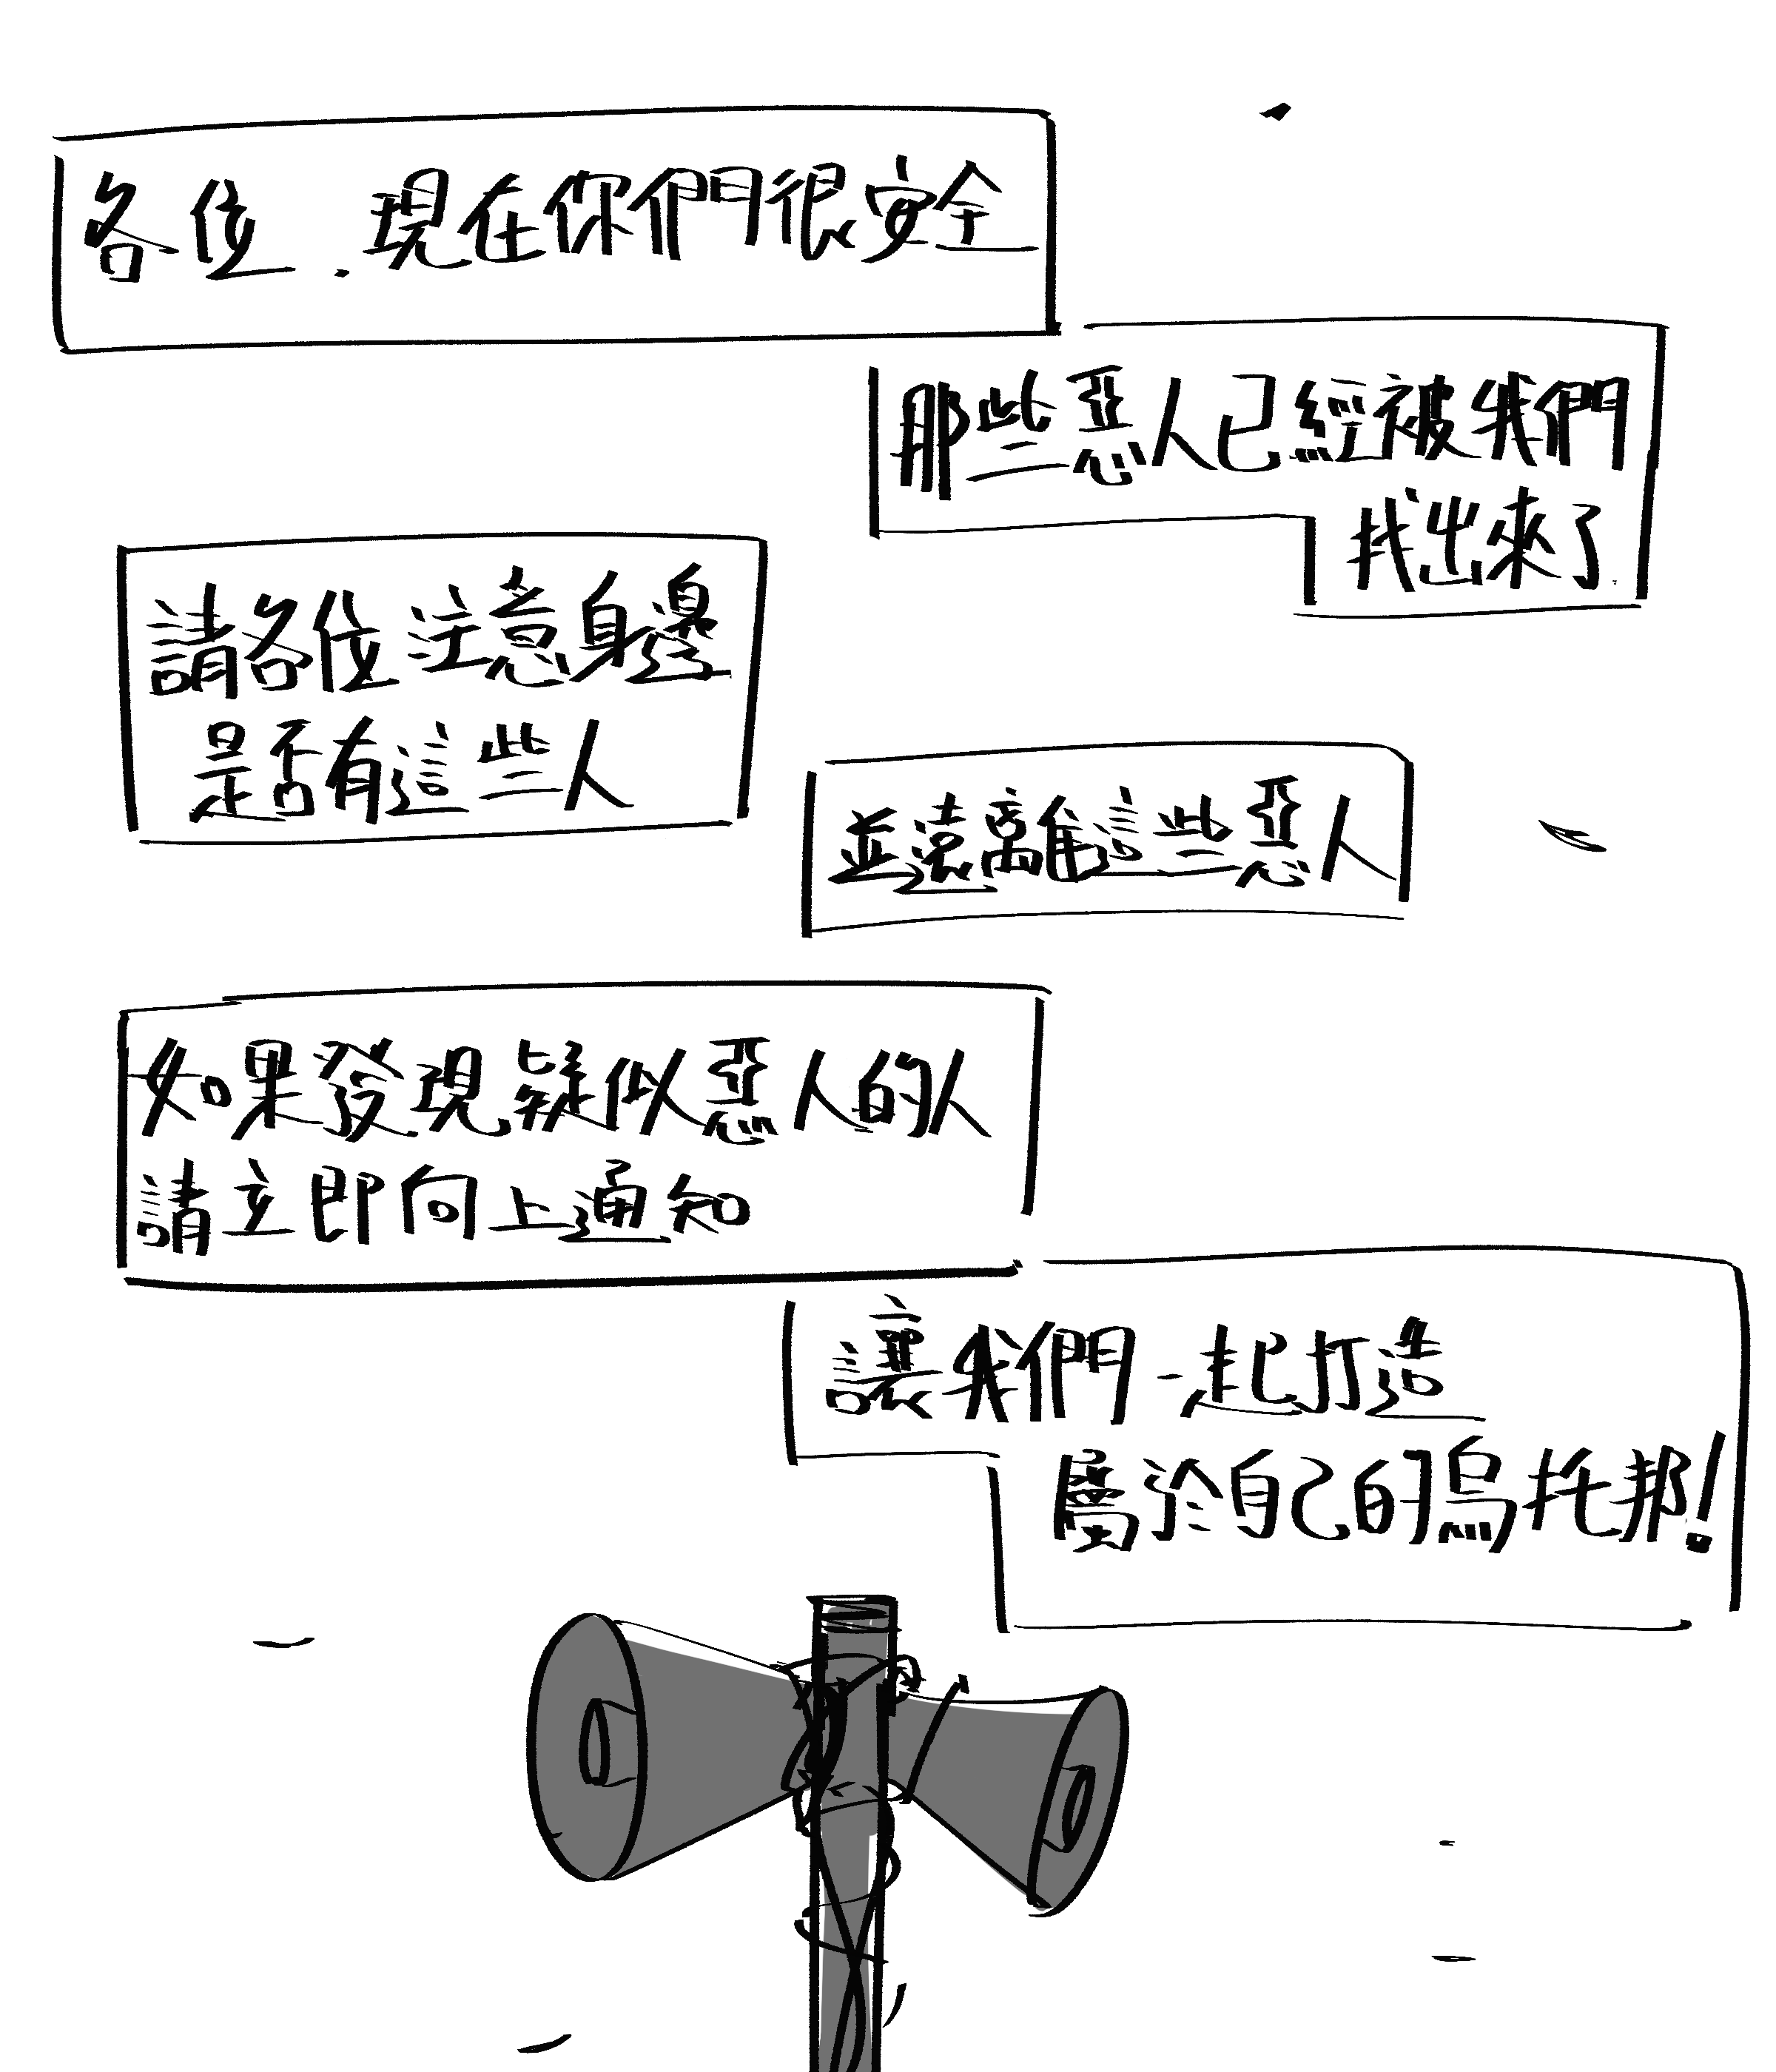 各位.現在你們很安全
那些惡人已經被我們
找出來了
請各位注意身邊
是否有這些人
並遠離這些惡人
如果發現疑似惡人的人
請立即向上通知
讓我們一起打造
屬於自己的烏托邦!